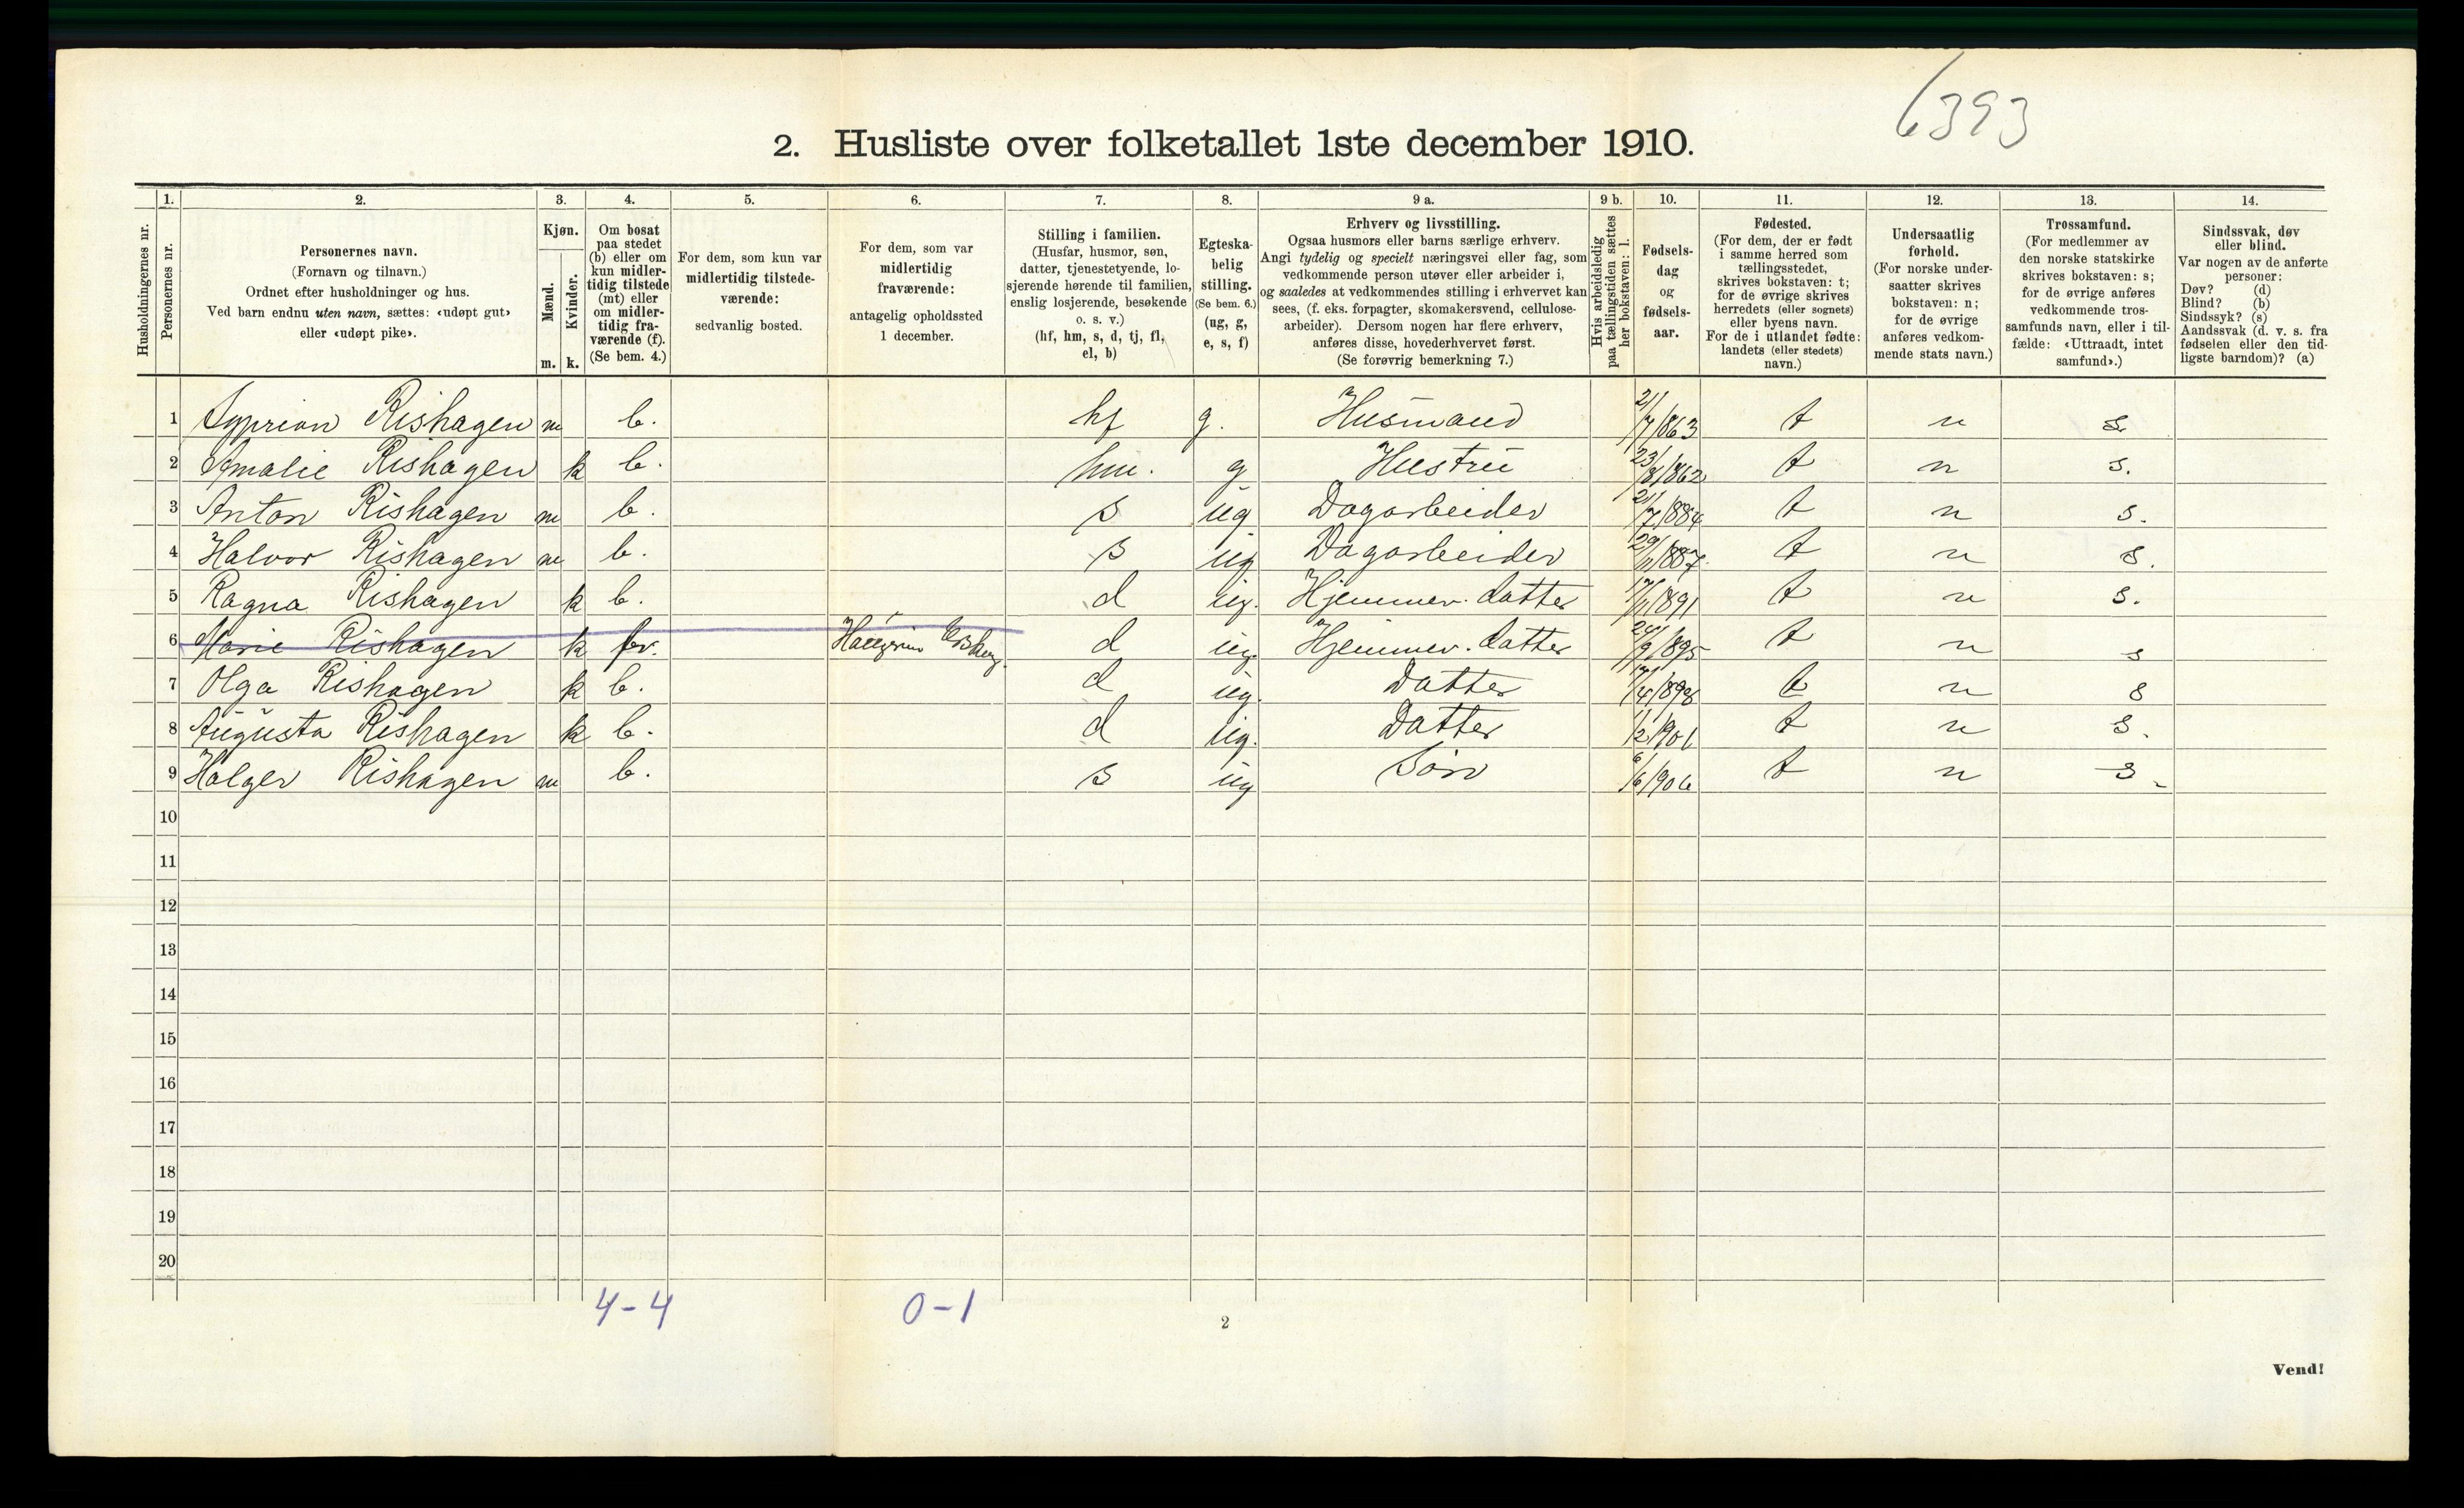 6393
2. Husliste over folketallet 1ste december 1910.
Husholdningernes nr.
1.
Personernes nr.
2.
Personernes navn.
(Fornavn og tilnavn.)
Ordnet efter husholdninger og hus.
Ved barn endnu uten navn, sættes: «udøpt gut»
eller «udøpt pike».
3.
Kjøn.
Mænd.
Kvinder.
m. k.
4.
Om bosat
paa stedet
(b) eller om
kun midler-
tidig tilstede
(mt) eller
om midler-
tidig fra-
værende (f).
(Se bem. 4.)
5.
For dem, som kun var
midlertidig tilstede-
værende:
sedvanlig bosted.
6.
For dem, som var
midlertidig
fraværende:
antagelig opholdssted
1 december.
7.
Stilling i familien.
(Husfar, husmor, søn,
datter, tjenestetyende, lo-
sjerende hørende til familien,
enslig losjerende, besøkende
o. s. v.)
(hf, hm, s, d, tj, fl,
el, b)
8.
Egteska-
belig
stilling.
(Se bem. 6.)
(ug, g,
e, s, f)
9 a.
Erhverv og livsstilling.
Ogsaa husmors eller barns særlige erhverv.
Angi tydelig og specielt næringsvei eller fag, som
vedkommende person utøver eller arbeider i,
og saaledes at vedkommendes stilling i erhvervet kan
sees, (f. eks. forpagter, skomakersvend, cellulose-
arbeider). Dersom nogen har flere erhverv,
anføres disse, hovederhvervet først.
(Se forøvrig bemerkning 7.)
9 b.
Hvis arbeidsledig
paa tællingstiden sættes
her bokstaven: l.
10.
Fødsels-
dag
og
fødsels-
aar.
11.
Fødested.
(For dem, der er født
i samme herred som
tællingsstedet,
skrives bokstaven: t;
for de øvrige skrives
herredets (eller sognets)
eller byens navn.
For de i utlandet fødte:
landets (eller stedets)
navn.)
12.
Undersaatlig
forhold.
(For norske under-
saatter skrives
bokstaven: n;
for de øvrige
anføres vedkom-
mende stats navn.)
13.
Trossamfund.
(For medlemmer av
den norske statskirke
skrives bokstaven: s;
for de øvrige anføres
vedkommende tros-
samfunds navn, eller i til-
fælde: «Uttraadt, intet
samfund».)
14.
Sindssvak, døv
eller blind.
Var nogen av de anførte
personer:
Døv? (d)
Blind? (b)
Sindssyk? (s)
Aandssvak (d. v. s. fra
fødselen eller den tid-
ligste barndom)? (a)
1 Syprian Rishagen m b. hf g. Husmand 21/7 1863 t n s.
2 Amalie Rishagen k b. hm. g Hustru 23/8 1862 t n s.
3 Anton Rishagen m b. s ug Dagarbeider 21/7 1884 t n s.
4 Halvor Rishagen m b. s ug Dagarbeider 29/11 1887 t n s.
5 Ragna Rishagen k b. d ug. Hjemmev. datter 17/11 1891 t n s.
6 Marie Rishagen k d ug. Hjemmev. datter 24/9 1895 t n s
7 Olga Rishagen k b. d ug. Datter 17/4 1898 t n s
8 Augusta Rishagen k b. d ug. Datter 1/2 1901 t n s.
9 Holger Rishagen m b. s ug Søn 6/6 1906 t n s
10
11
12
13
14
15
16
17
18
19
20
4-4 0-1
2
Vend!